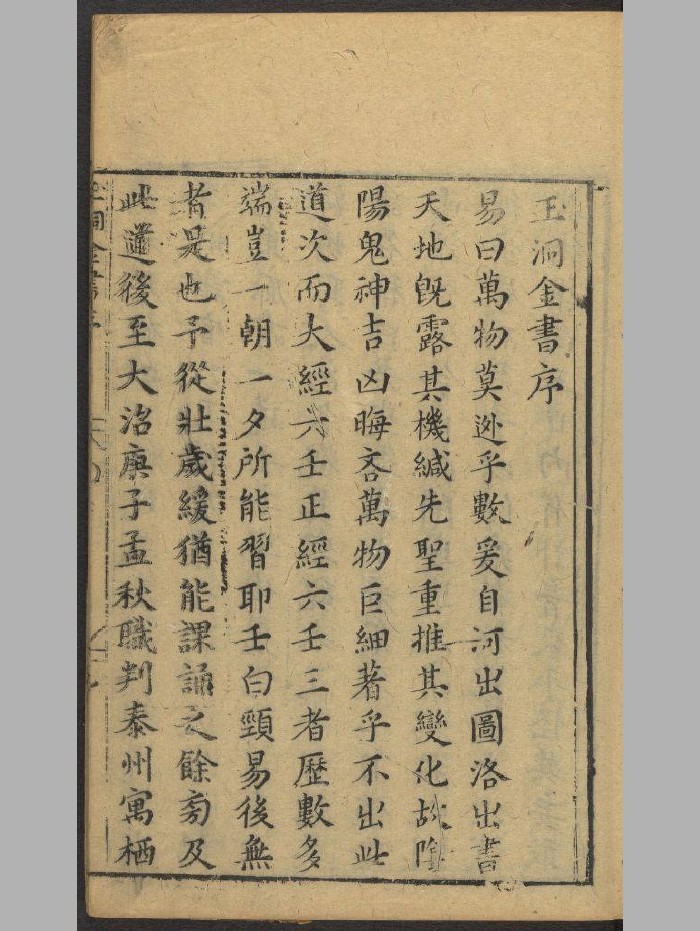 玉洞金書序
易曰萬物莫迯乎數爰自河出圖洛出書
天地旣露其機緘先聖重推其變化故陰
陽鬼神吉凶晦吝萬物巨細著乎不出此
道次而大經六壬正經六壬三者歷數多
端豈一朝一夕所能習耶壬白頸易後無
者是也予從壯歲緩猶能課誦之餘旁及
此道後至大治庚子孟秋職判泰州寓栖
洞金書序